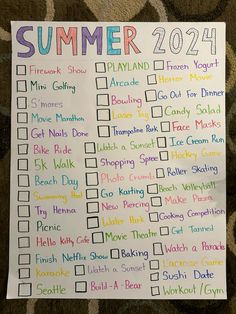 SUMMER 2024
Firework Show
Mini Golfing
S'mores
Movie Marathon
Get Nails Done
Bike Ride
5k Walk
Beach Day
Swimming Pool
Try Henna
Picnic
Hello Kitty Cafe
Finish Netflix Show
Karaoke
Seattle
PLAYLAND
Arcade
Bowling
Laser Tag
Trampoline Park
Watch a Sunset
Shopping Spree
Photo
Go Karting
New Piercing
Water Park
Movie Theatre
Baking
Watch a Sunset
Build-A-Bear
Frozen Yogurt
Horror Movie
Go Out For Dinner
Candy Salad
Face Masks
Ice Cream Run
Hockey Game
Roller Skating
Beach Volleyball
Make
Cooking Competition
Get Tanned
Watch a
Lacrosse Game
Sushi Date
Workout/Gym